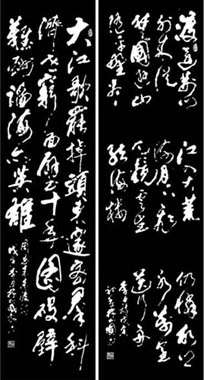 渡遠荊門
外來從
楚國遊山
隨平野盡
江入大荒
流月下飛
天鏡雲生
結海樓
仍憐故鄉
水萬里
送行舟
大江歌罷掉頭東邃密群科
濟世窮面壁十年圖破壁
難酬蹈海亦英雄